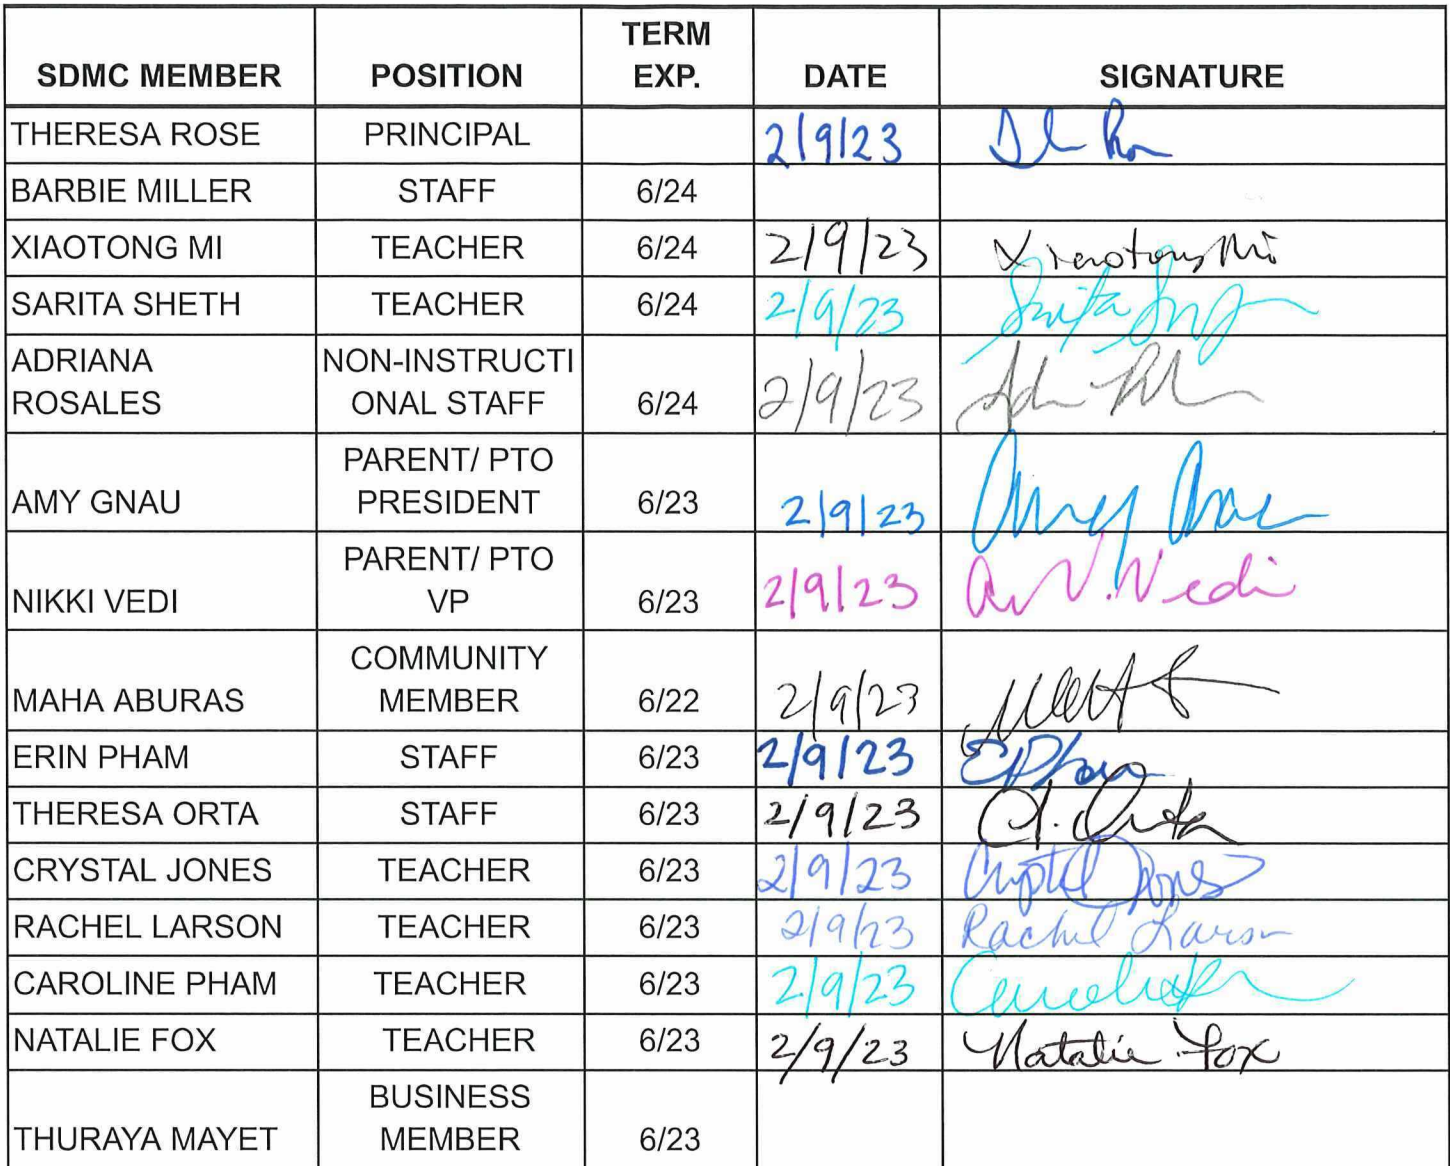 SDMC MEMBER POSITION TERM EXP. DATE SIGNATURE
THERESA ROSE PRINCIPAL 2/9/23
BARBIE MILLER STAFF 6/24
XIAOTONG MI TEACHER 6/24 2/9/23 Xiaotong Mi
SARITA SHETH TEACHER 6/24 2/9/23
ADRIANA
ROSALES NON-INSTRUCTI
ONAL STAFF 6/24 2/9/23
AMY GNAU PARENT/ PTO
PRESIDENT 6/23 2/9/23 Amy
NIKKI VEDI PARENT/ PTO
VP 6/23 2/9/23 N. Vedi
MAHA ABURAS COMMUNITY
MEMBER 6/22 2/9/23
ERIN PHAM STAFF 6/23 2/9/23 EPham
THERESA ORTA STAFF 6/23 2/9/23 Orta
CRYSTAL JONES TEACHER 6/23 2/9/23 Crystal Jones
RACHEL LARSON TEACHER 6/23 2/9/23 Rachel Larson
CAROLINE PHAM TEACHER 6/23 2/9/23
NATALIE FOX TEACHER 6/23 2/9/23 Natalie Fox
THURAYA MAYET BUSINESS
MEMBER 6/23